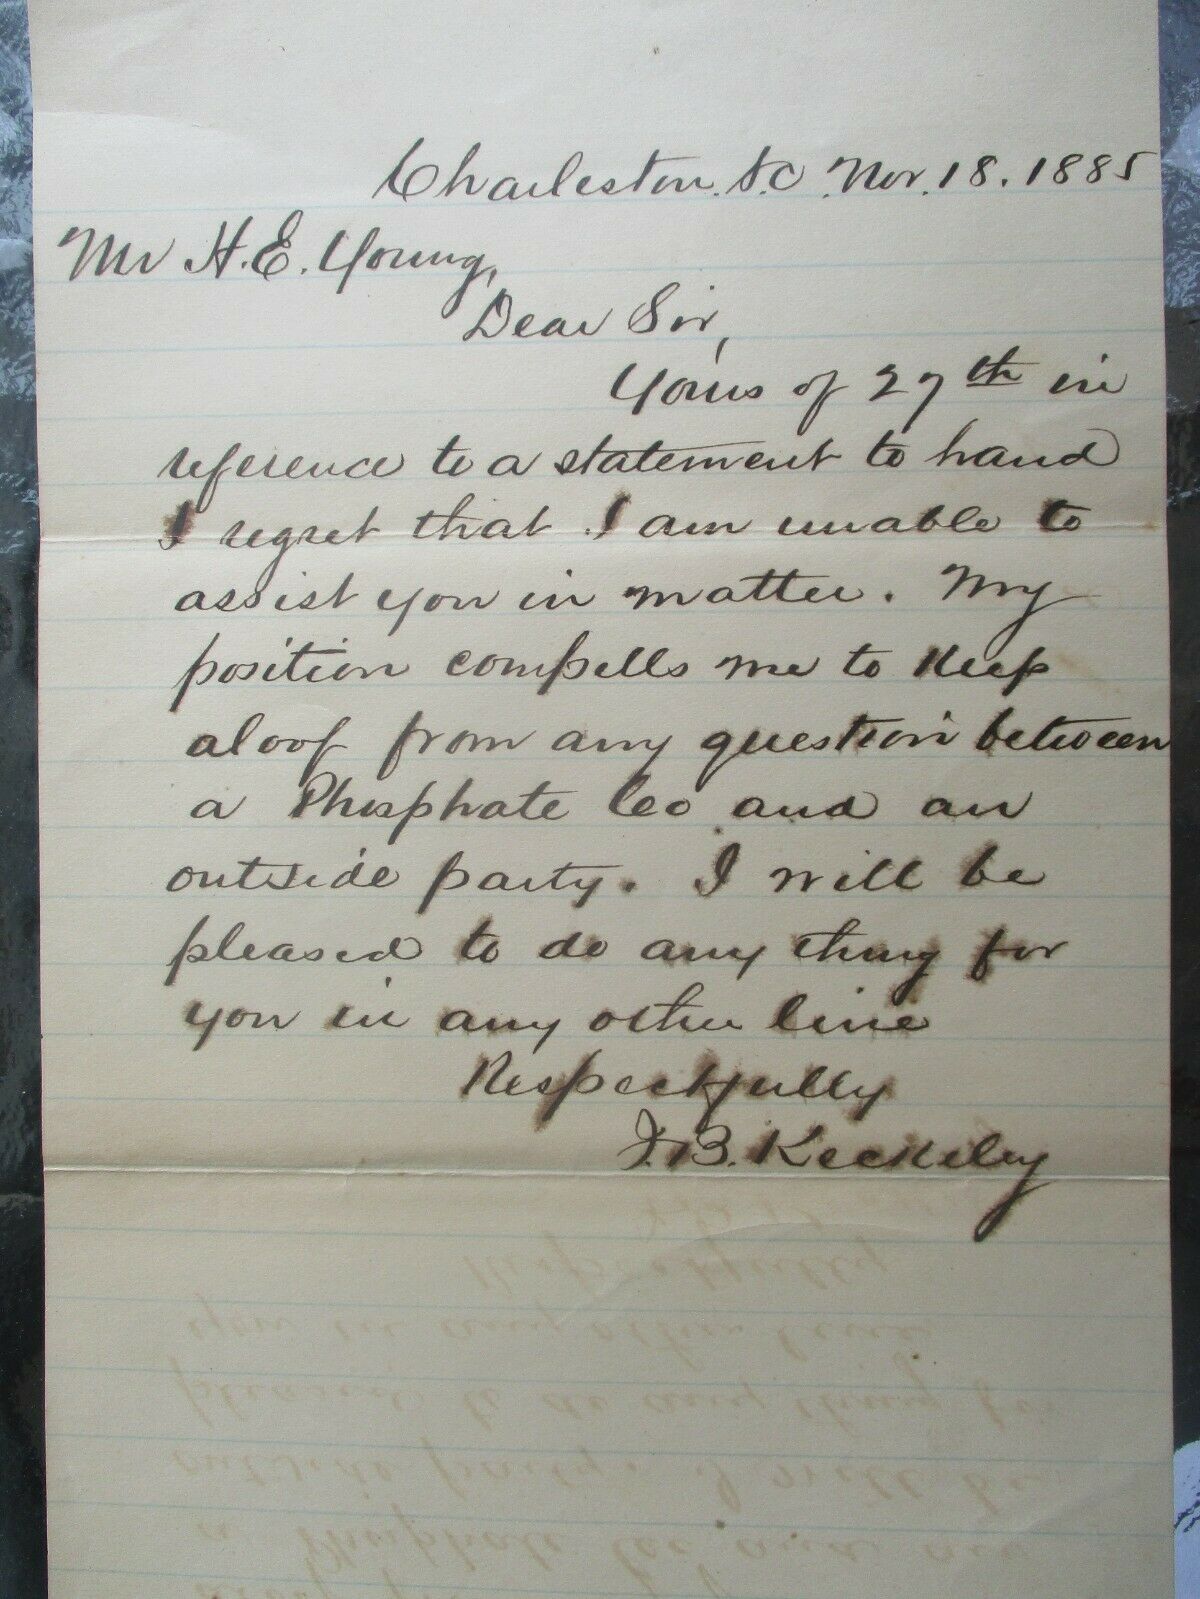 Charleston. S.C. Nov. 18. 1885
Mr H. E. Young,
Dear Sir,
Yours of 27th in
reference to a statement to hand
I regret that I am unable to
assist you in matter. My
position compells me to keep
aloof from any question between
a Phosphate Co and an
outside party. I will be
pleased to do any thing for
you in any other line
Respectfully
J. B. Keckeley